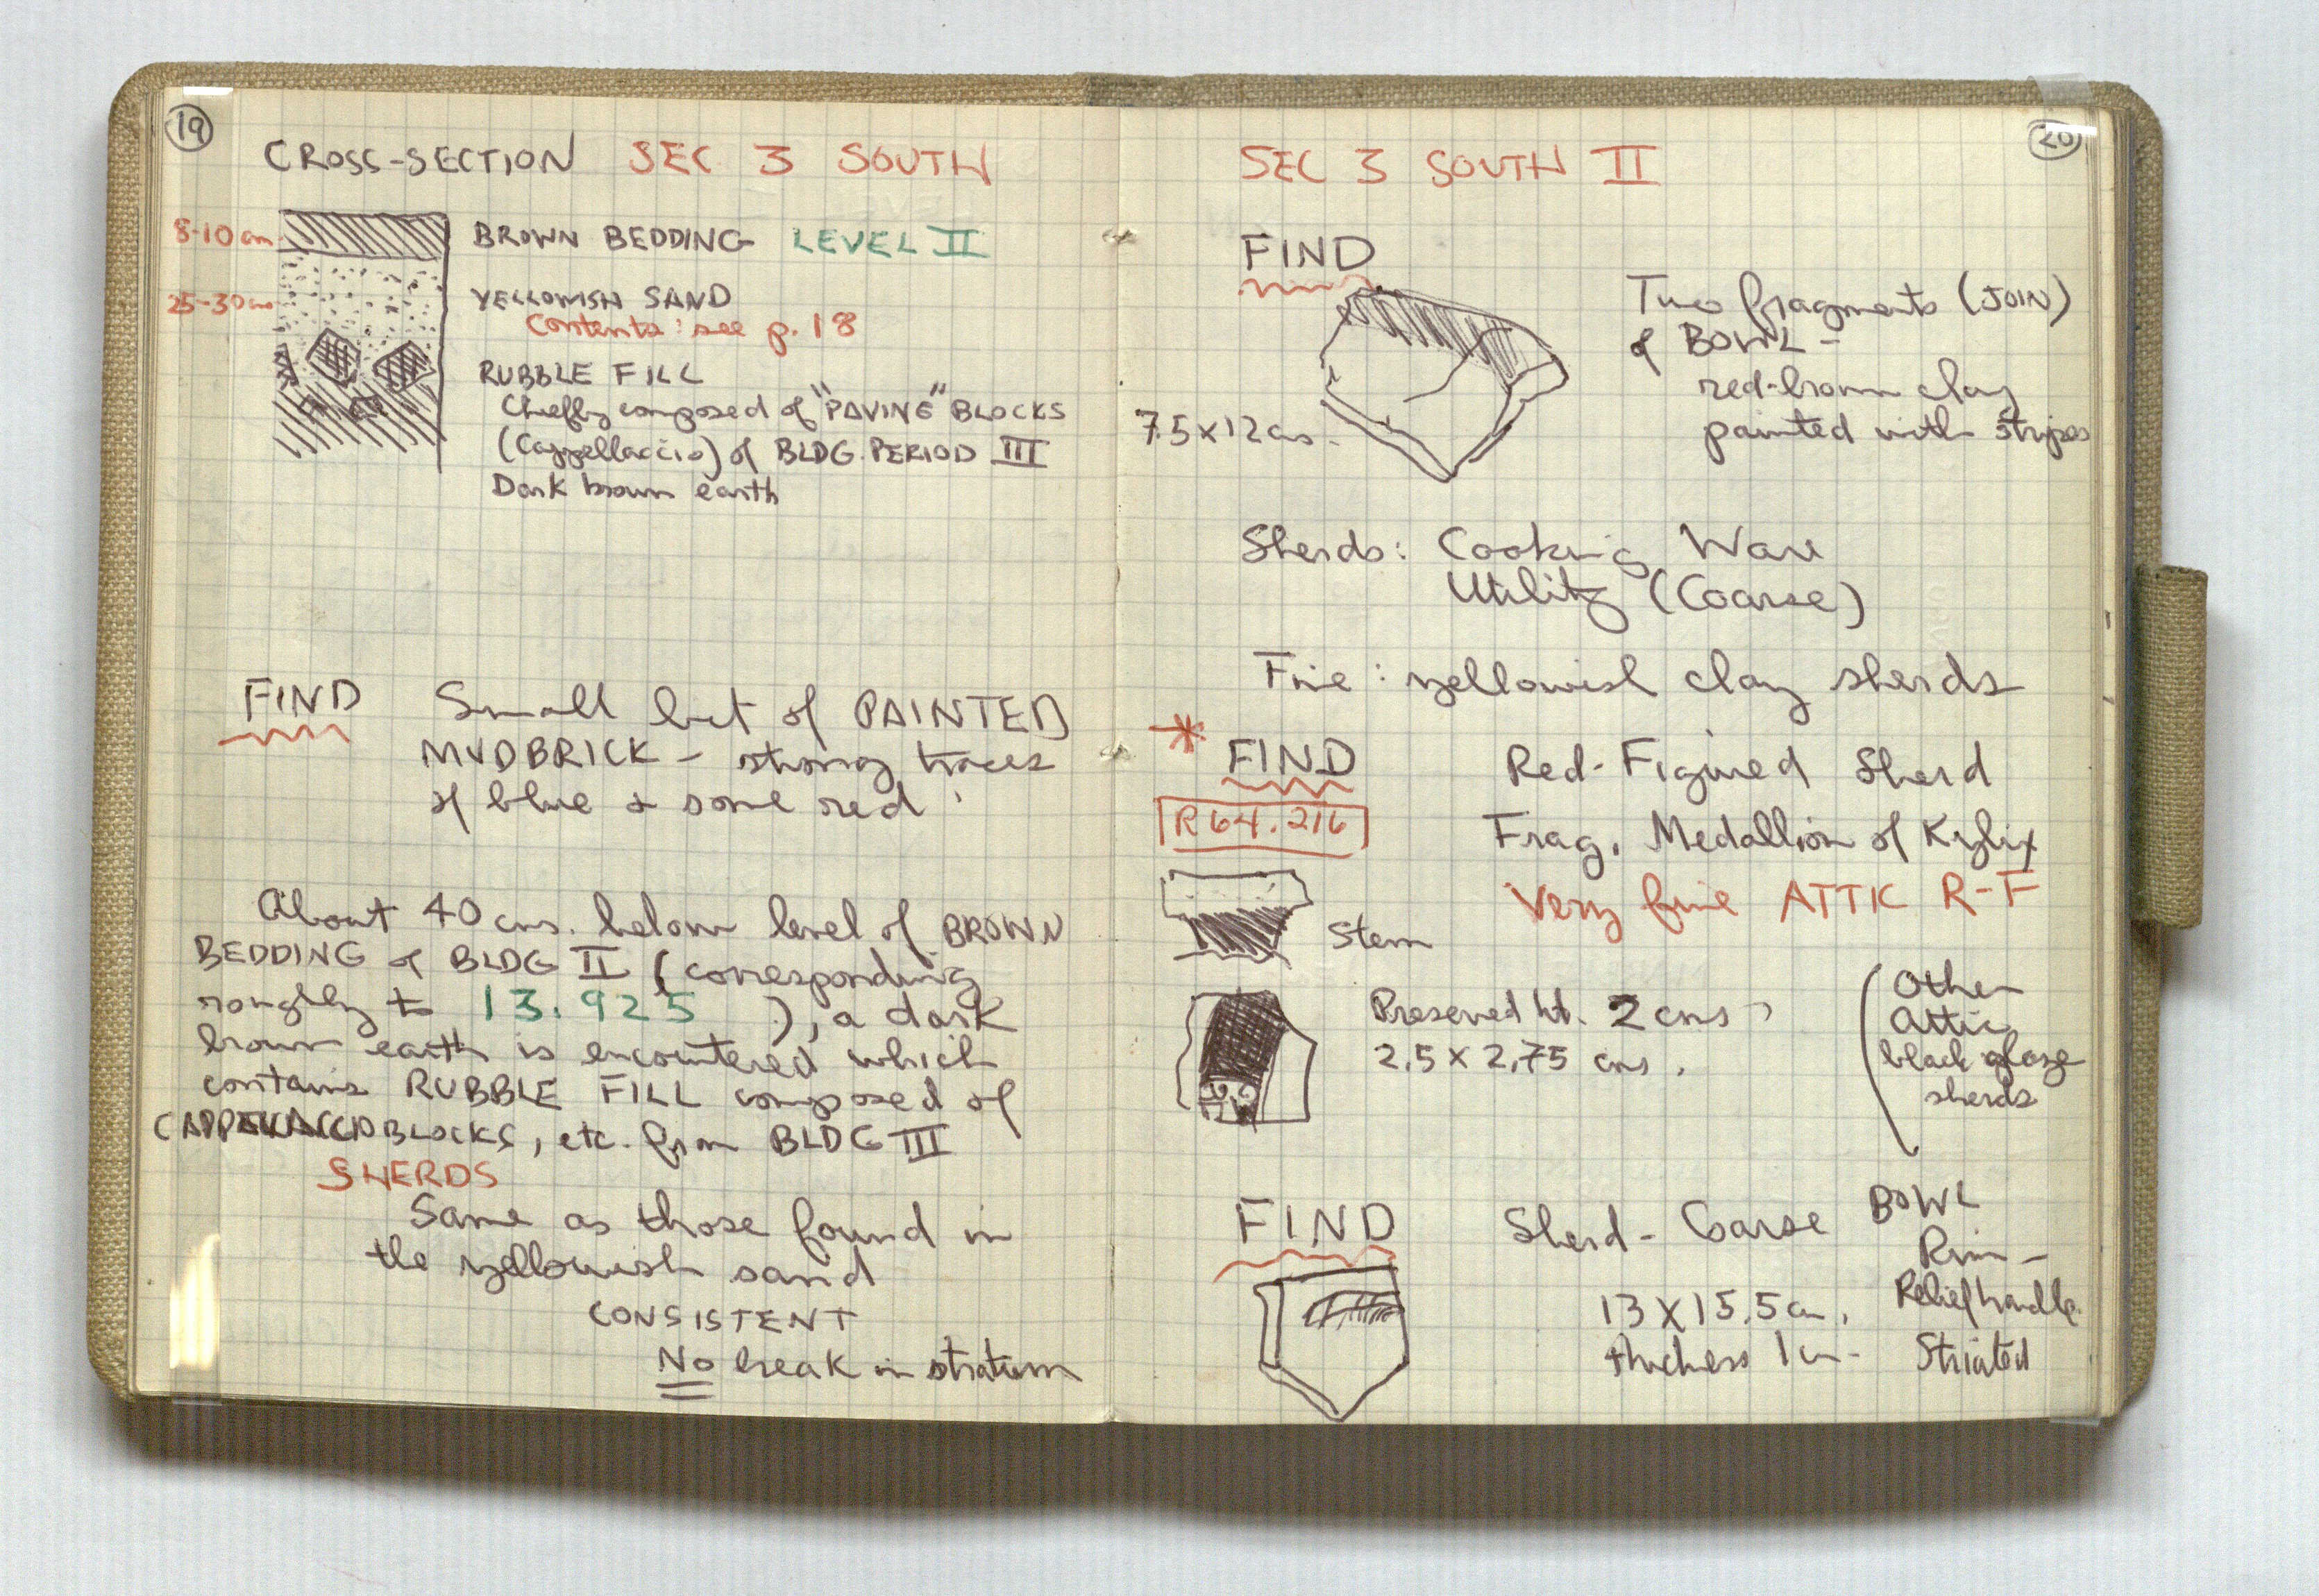 19
CROSS-SECTION SEC 3 SOUTH
8-10 cm
BROWN BEDDING LEVEL II
25-30 cm
YELLOWISH SAND
Contents: see p. 18
RUBBLE FILL
Chiefly composed of "PAVING" BLOCKS
(Cappellaccio) of BLDG. PERIOD III
Dark brown earth
FIND Small bit of PAINTED
MUDBRICK - strong traces
of blue & some red.
About 40 cms. below level of BROWN
BEDDING of BLDG II (corresponding
roughly to 13.925 ), a dark
brown earth is encountered which
contains RUBBLE FILL composed of
CAPPELLACCIO BLOCKS, etc. from BLDG III
SHERDS
Same as those found in
the yellowish sand
CONSISTENT
No break in stratum
20
SEC 3 SOUTH II
FIND
Two fragments (JOIN)
of BOWL -
red-brown clay
painted with stripes
7.5 x 12 cms.
Sherds: Cooking Ware
Utility (Coarse)
Fine: yellowish clay sherds
* FIND Red-Figured Sherd
R64.216
Frag. Medallion of Kylix
Very fine ATTIC R-F
Stem
Preserved ht. 2 cms
2.5 x 2.75 cms.
(Other
Attic
black glaze
sherds
FIND Sherd - Coarse BOWL
Rim -
Relief handle
Striated
13 x 15.5 cm.
thickness 1 cm.